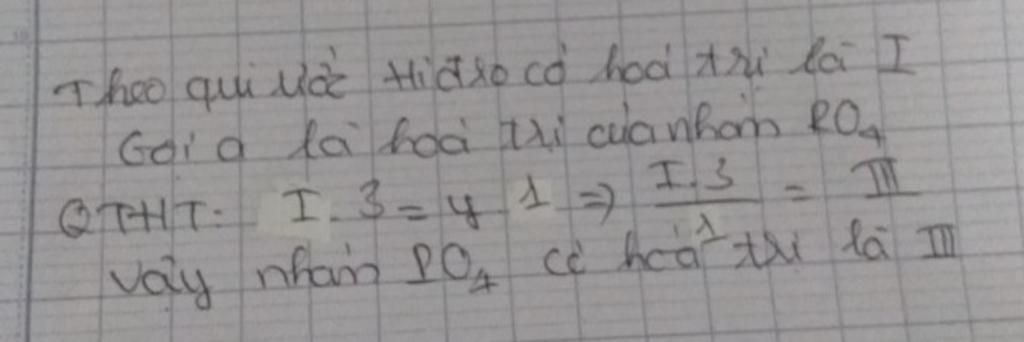 Theo qui ước Hiđro có hoá trị là I
Gọi a là hoá trị của nhóm PO4
QTHT: I. 3 = y 1 => I.3/1 = III
Vậy nhóm PO4 có hoá trị là III